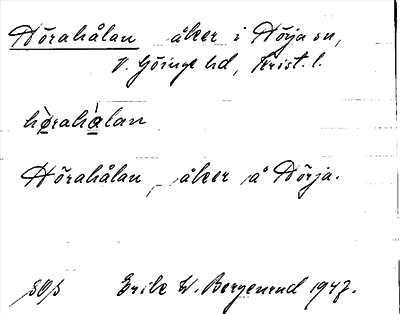 Hörahålan åker i Nörja sn,
V. Göinge hd, Krist. l.
hö̀rahå̀lan
Hörahålan, åker å Nörja.
SOS Erik W. Bergenrud 1947.